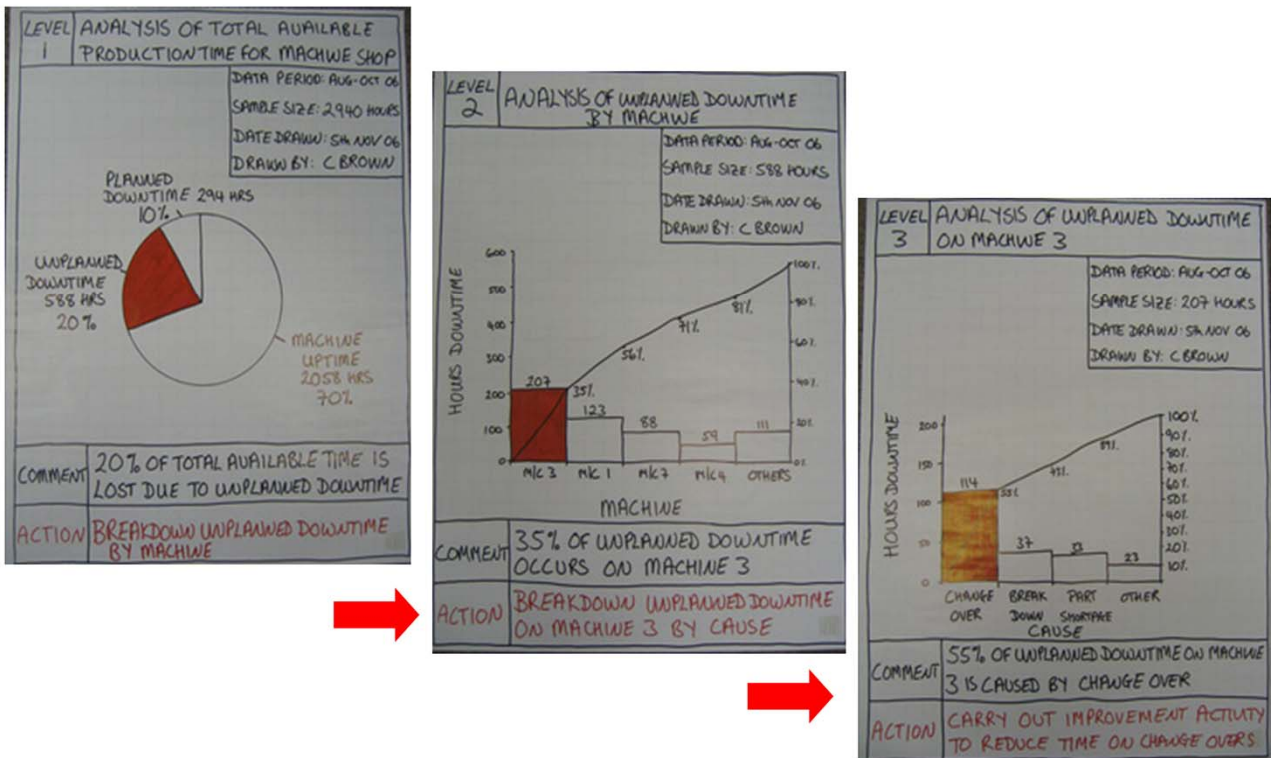 LEVEL 1
ANALYSIS OF TOTAL AVAILABLE
PRODUCTION TIME FOR MACHINE SHOP
DATA PERIOD: AUG-OCT 06
SAMPLE SIZE: 2940 HOURS
DATE DRAWN: 5th NOV 06
DRAWN BY: C BROWN
PLANNED
DOWNTIME 294 HRS
10%
UNPLANNED
DOWNTIME
588 HRS
20%
MACHINE
UPTIME
2058 HRS
70%
COMMENT
20% OF TOTAL AVAILABLE TIME IS
LOST DUE TO UNPLANNED DOWNTIME
ACTION
BREAKDOWN UNPLANNED DOWNTIME
BY MACHINE
LEVEL 2
ANALYSIS OF UNPLANNED DOWNTIME
BY MACHINE
DATA PERIOD: AUG-OCT 06
SAMPLE SIZE: 588 HOURS
DATE DRAWN: 5th NOV 06
DRAWN BY: C BROWN
HOURS DOWNTIME
600
500
400
300
200
100
0
100%
80%
60%
40%
20%
0%
207
123
88
59
111
35%
56%
71%
81%
M/C 3
M/C 1
M/C 7
M/C 4
OTHERS
MACHINE
COMMENT
35% OF UNPLANNED DOWNTIME
OCCURS ON MACHINE 3
ACTION
BREAKDOWN UNPLANNED DOWNTIME
ON MACHINE 3 BY CAUSE
LEVEL 3
ANALYSIS OF UNPLANNED DOWNTIME
ON MACHINE 3
DATA PERIOD: AUG-OCT 06
SAMPLE SIZE: 207 HOURS
DATE DRAWN: 5th NOV 06
DRAWN BY: C BROWN
HOURS DOWNTIME
200
150
100
50
0
100%
90%
80%
70%
60%
50%
40%
30%
20%
10%
114
37
33
23
55%
89%
CHANGE OVER
BREAK DOWN
PART SHORTAGE
OTHER
CAUSE
COMMENT
55% OF UNPLANNED DOWNTIME ON MACHINE
3 IS CAUSED BY CHANGE OVER
ACTION
CARRY OUT IMPROVEMENT ACTIVITY
TO REDUCE TIME ON CHANGE OVERS